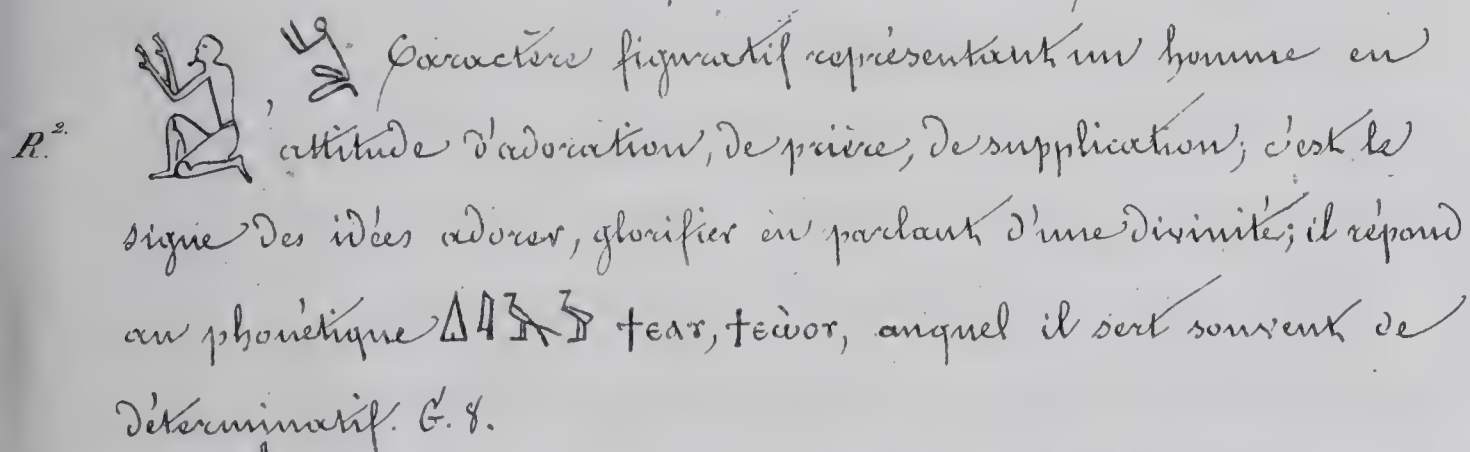 𓀃, Caractère figuratif représentant un homme en
R.² attitude d'adoration, de prière, de supplication; c'est le
signe des idées adorer, glorifier en parlant d'une divinité; il répond
au phonétique 𓏙𓇋𓄿𓅱 ϯⲉⲁⲩ, ϯⲉⲱ̀ⲟⲩ, auquel il sert souvent de
déterminatif. G. 8.